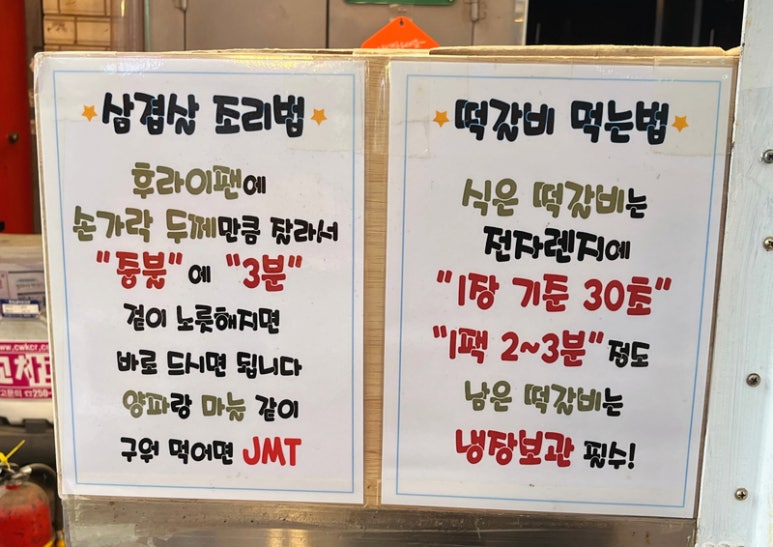 삼겹살 조리법
후라이팬에
손가락 두께만큼 잘라서
"중불"에 "3분"
겉이 노릇해지면
바로 드시면 됩니다
양파랑 마늘 같이
구워 먹어면 JMT
떡갈비 먹는법
식은 떡갈비는
전자렌지에
"1장 기준 30초"
"1팩 2~3분" 정도
남은 떡갈비는
냉장보관 필수!
www.cwkcr